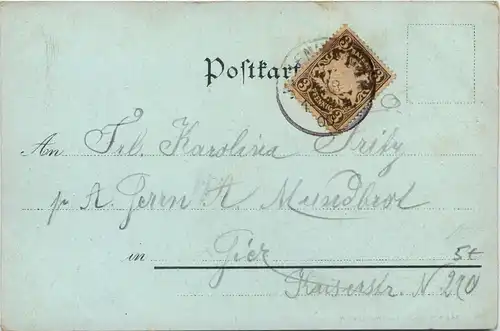 Postkarte
3 3
An Frl. Karolina Fritz
pr A. Herrn A Mundbrot
in Hier 5€
Kaiserstr. N 210